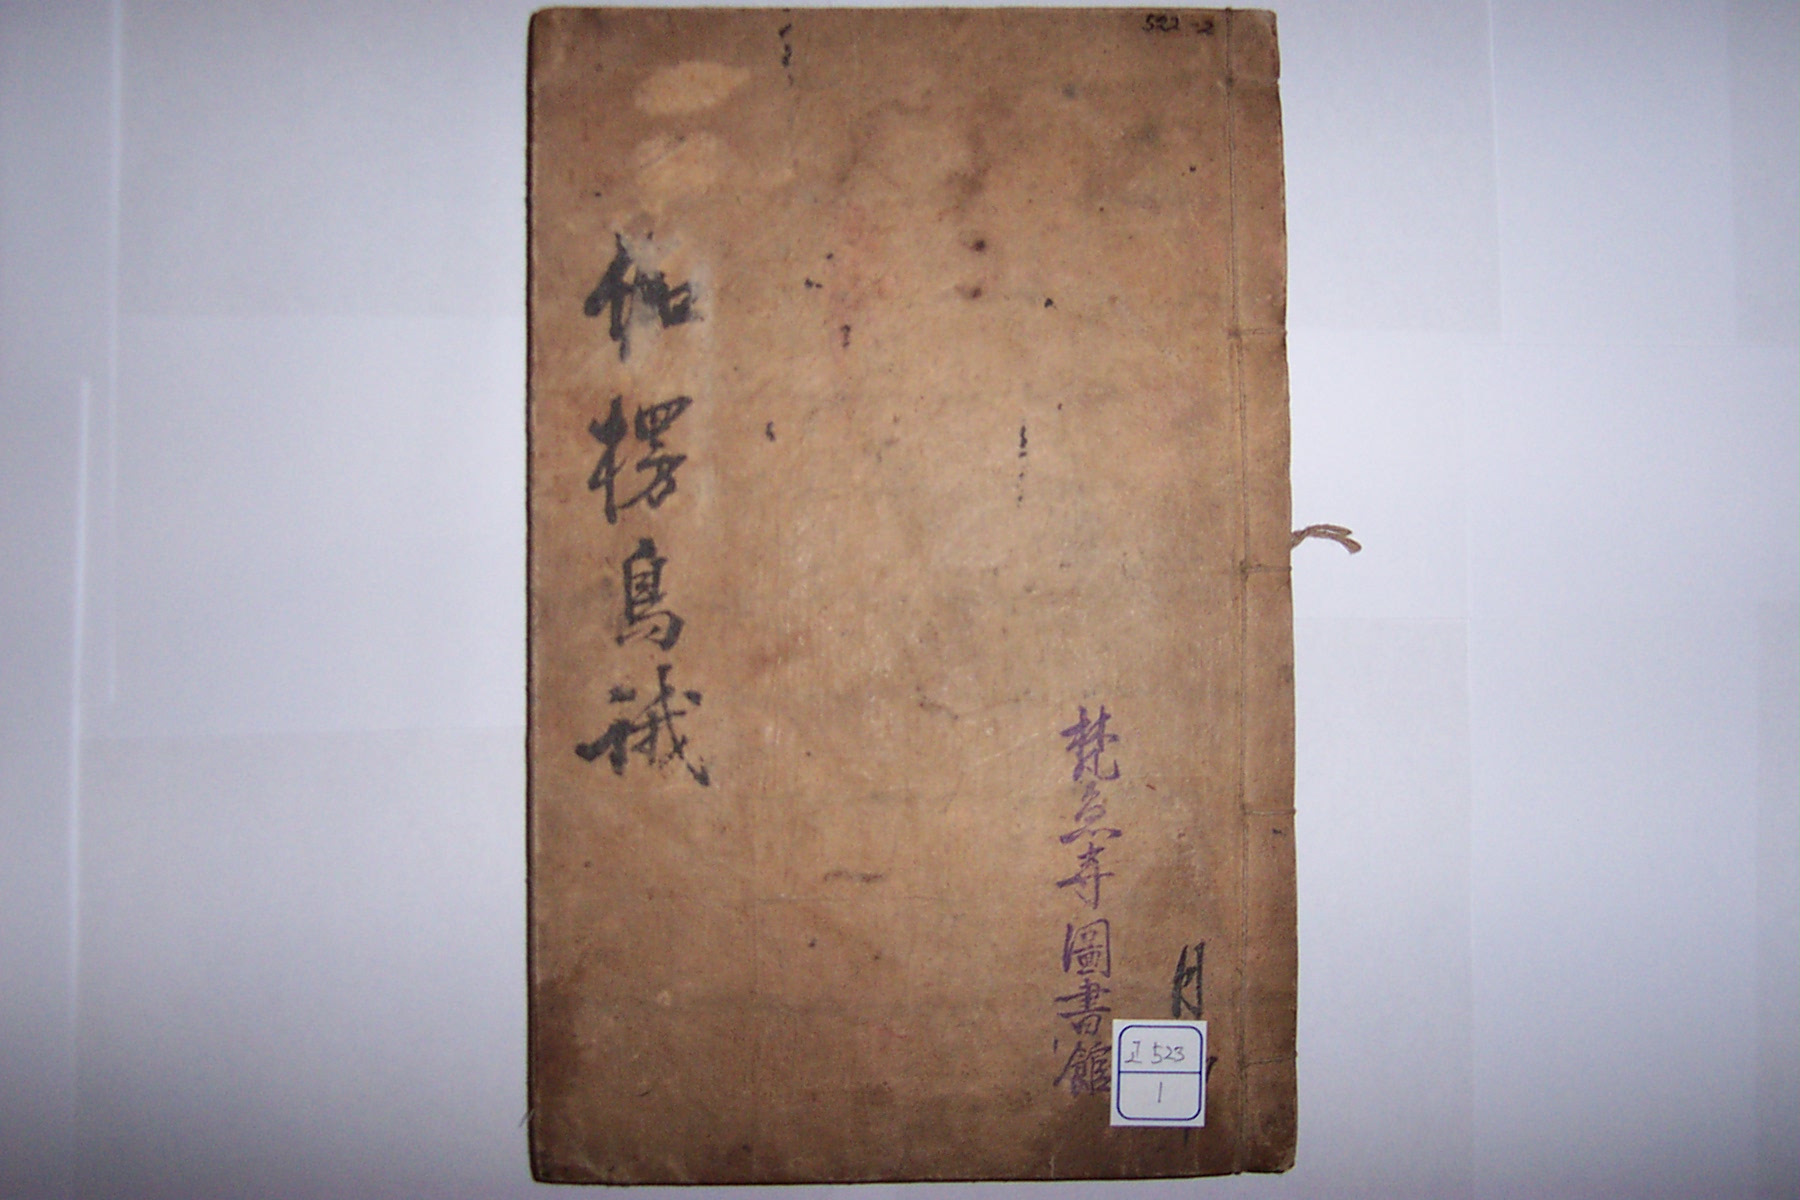 522-2
伽楞鳥識
梵魚寺圖書館
月
正 523
1